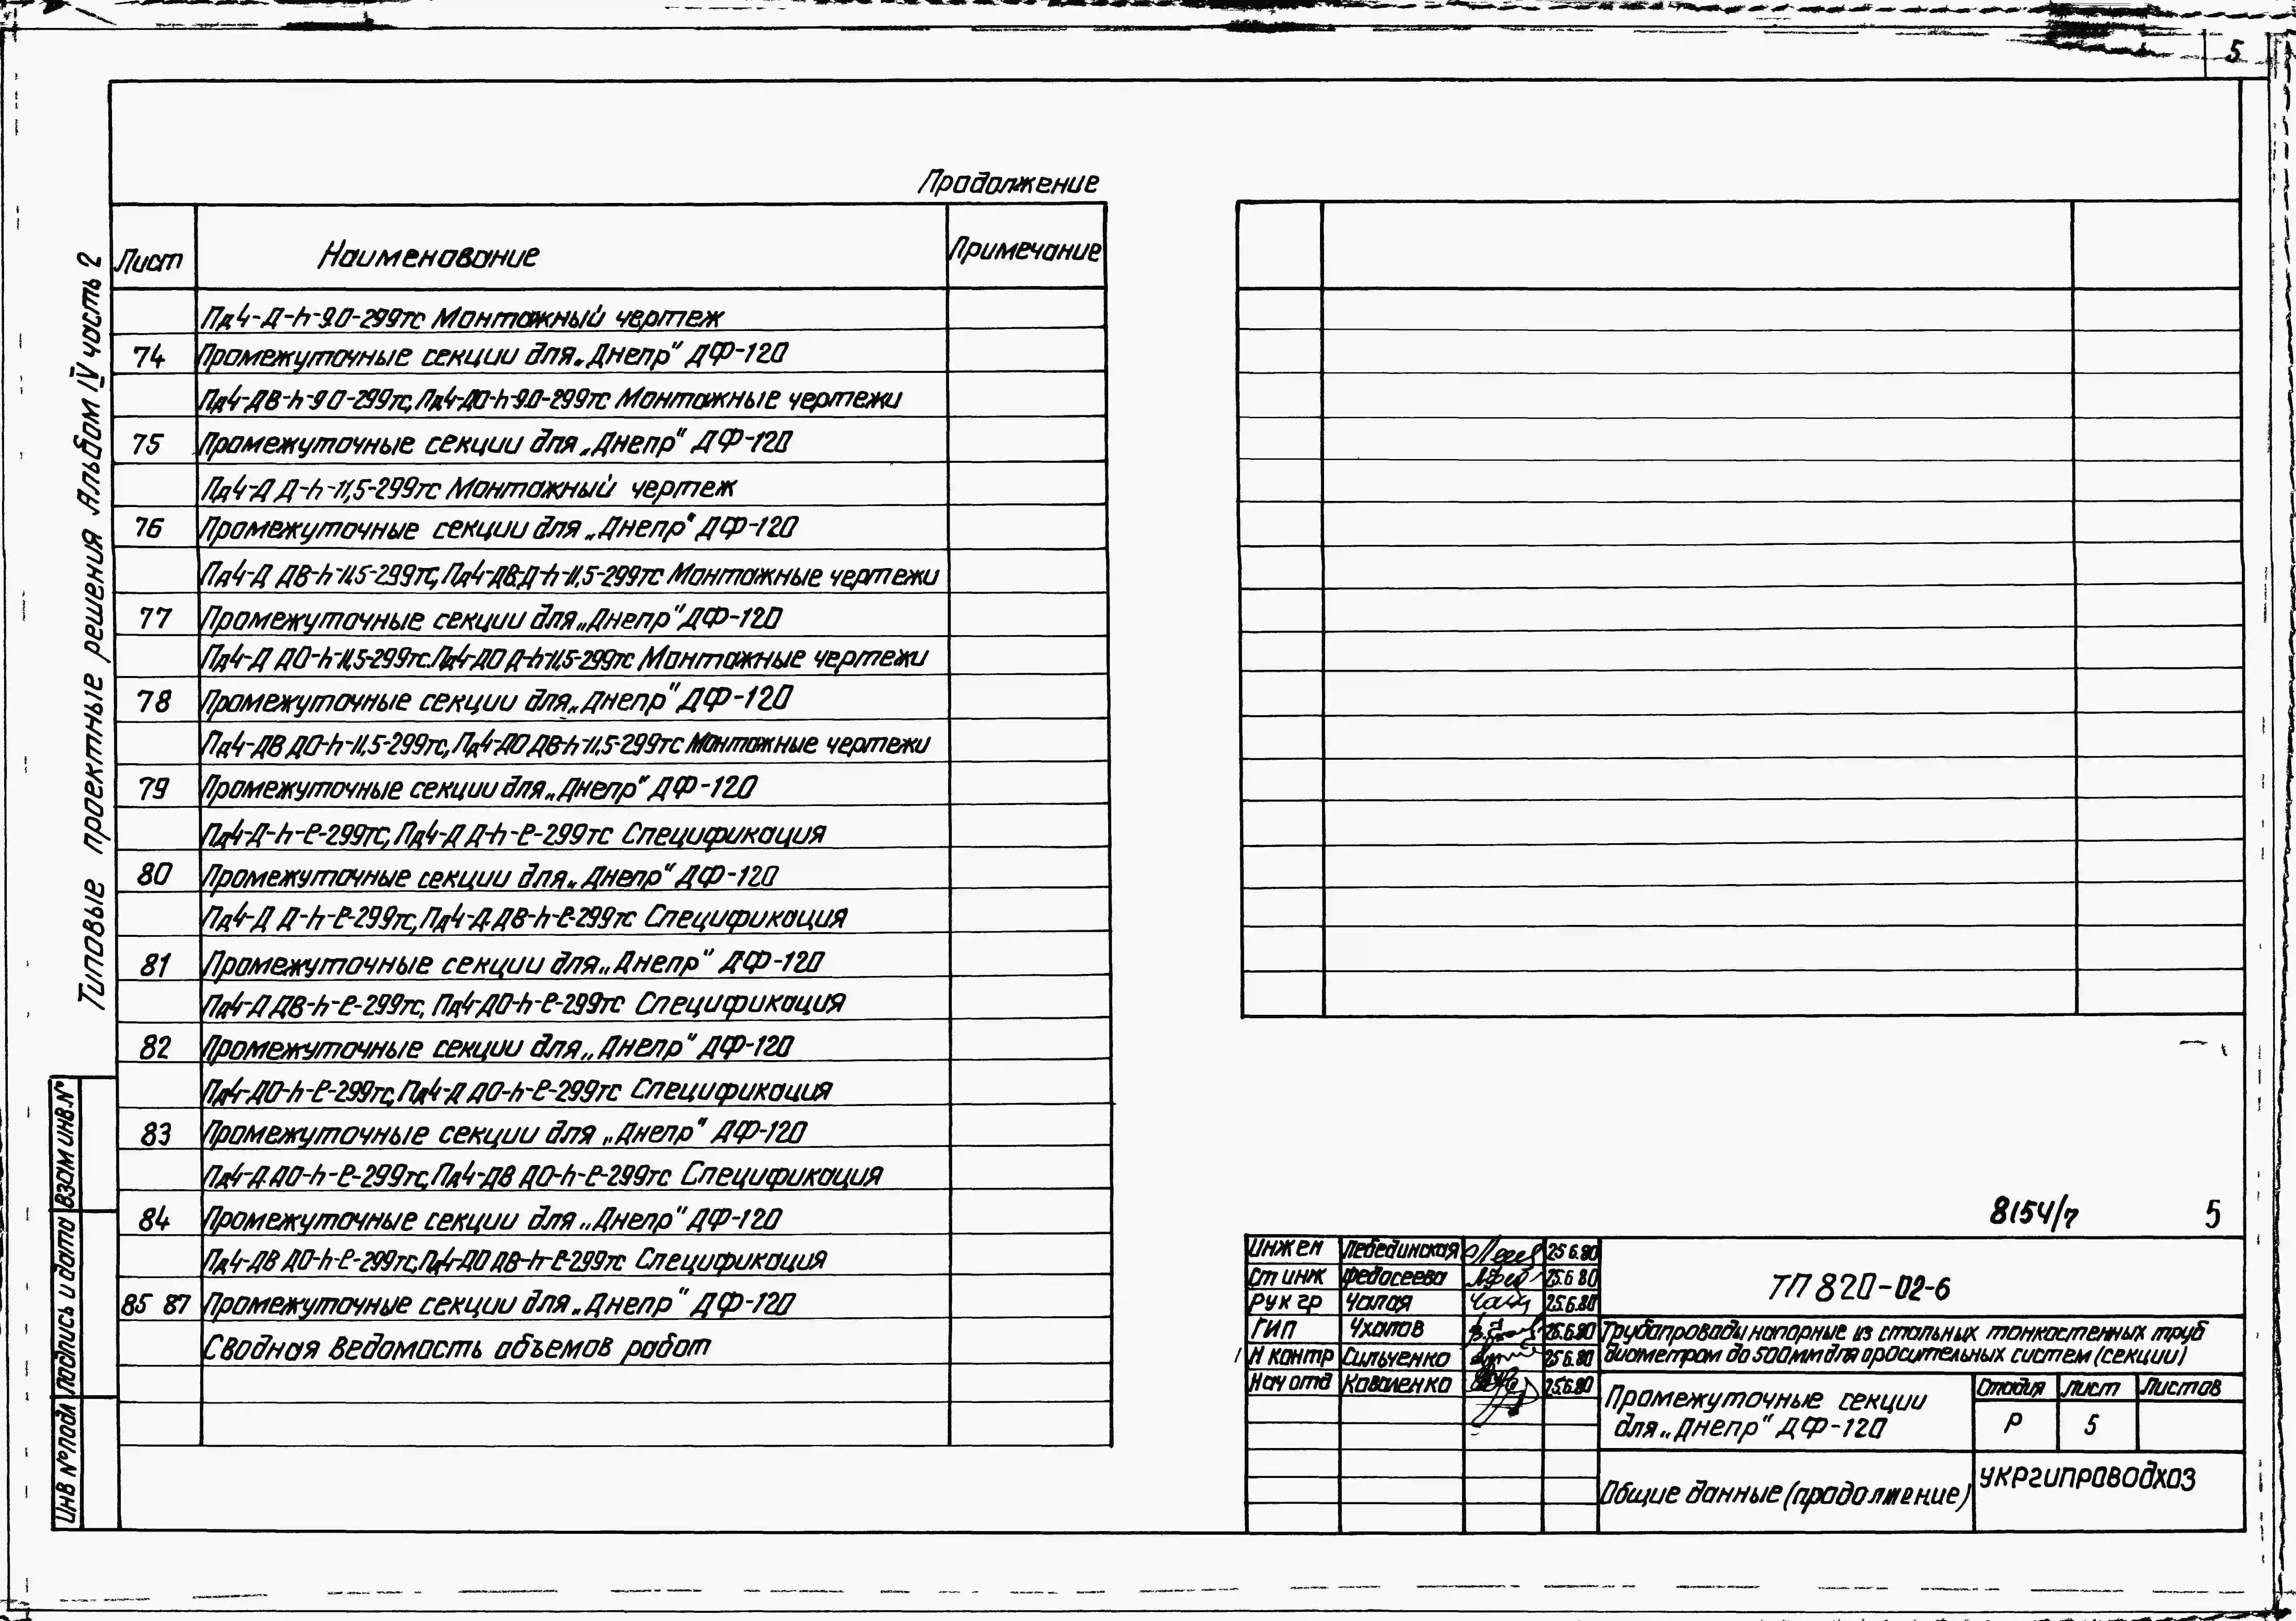 5
Продолжение
Лист Наименование Примечание
Пд4-Д-h-9.0-299тс Монтажный чертеж
74 Промежуточные секции для „Днепр" ДФ-120
Пд4-ДВ-h-9.0-299тс, Пд4-ДО-h-9.0-299тс Монтажные чертежи
75 Промежуточные секции для „Днепр" ДФ-120
Пд4-Д Д-h-11,5-299тс Монтажный чертеж
76 Промежуточные секции для „Днепр" ДФ-120
Пд4-Д ДВ-h-11.5-299тс, Пд4-ДВ.Д-h-11,5-299тс Монтажные чертежи
77 Промежуточные секции для „Днепр" ДФ-120
Пд4-Д ДО-h-11,5-299тс. Пд4-ДО Д-h-11,5-299тс Монтажные чертежи
78 Промежуточные секции для „Днепр" ДФ-120
Пд4-ДВ ДО-h-11.5-299тс, Пд4-ДО ДВ-h-11.5-299тс Монтажные чертежи
79 Промежуточные секции для „Днепр" ДФ-120
Пд4-Д-h-ℓ-299тс, Пд4-Д Д-h-ℓ-299тс Спецификация
80 Промежуточные секции для „Днепр" ДФ-120
Пд4-Д Д-h-ℓ-299тс, Пд4-Д.ДВ-h-ℓ-299тс Спецификация
81 Промежуточные секции для „Днепр" ДФ-120
Пд4-Д ДВ-h-ℓ-299тс, Пд4-ДО-h-ℓ-299тс Спецификация
82 Промежуточные секции для „Днепр" ДФ-120
Пд4-ДО-h-ℓ-299тс, Пд4-Д ДО-h-ℓ-299тс Спецификация
83 Промежуточные секции для „Днепр" ДФ-120
Пд4-Д.ДО-h-ℓ-299тс, Пд4-ДВ ДО-h-ℓ-299тс Спецификация
84 Промежуточные секции для „Днепр" ДФ-120
Пд4-ДВ ДО-h-ℓ-299тс, Пд4-ДО ДВ-h-ℓ-299тс Спецификация
85 87 Промежуточные секции для „Днепр" ДФ-120
Сводная ведомость объемов работ
Типовые проектные решения Альбом IV часть 2
Инв № подл Подпись и дата Взам инв.№
8154/7 5
Инжен Лебединская 25 6.80
Ст инж Федосеева 25.6 80
Рук гр Чалая 25.6.80
ГИП Чхатов 25.6.80
Н контр Сильченко 25 6.80
Нач отд Коваленко 25.6.80
ТП 820-02-6
Трубопроводы напорные из стальных тонкостенных труб
диаметром до 500мм для оросительных систем (секции)
Промежуточные секции
для „Днепр" ДФ-120
Стадия Лист Листов
Р 5
Общие данные (продолжение)
Укргипроводхоз